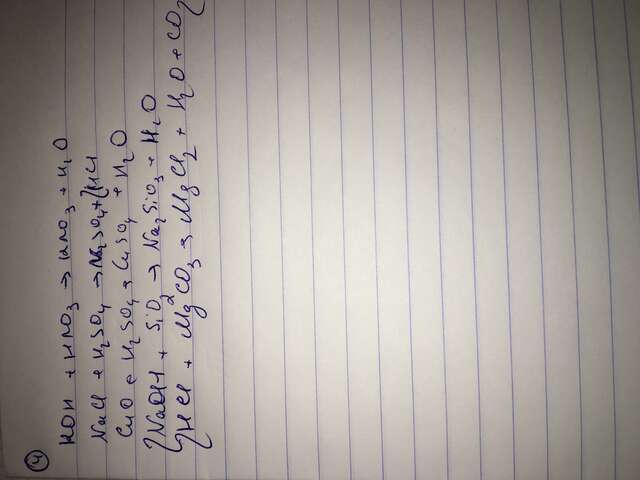 ④
KOH + HNO3 → KNO3 + H2O
NaCl + H2SO4 → Na2SO4 + 2HCl
CuO + H2SO4 → CuSO4 + H2O
2NaOH + SiO2 → Na2SiO3 + H2O
2HCl + MgCO3 → MgCl2 + H2O + CO2